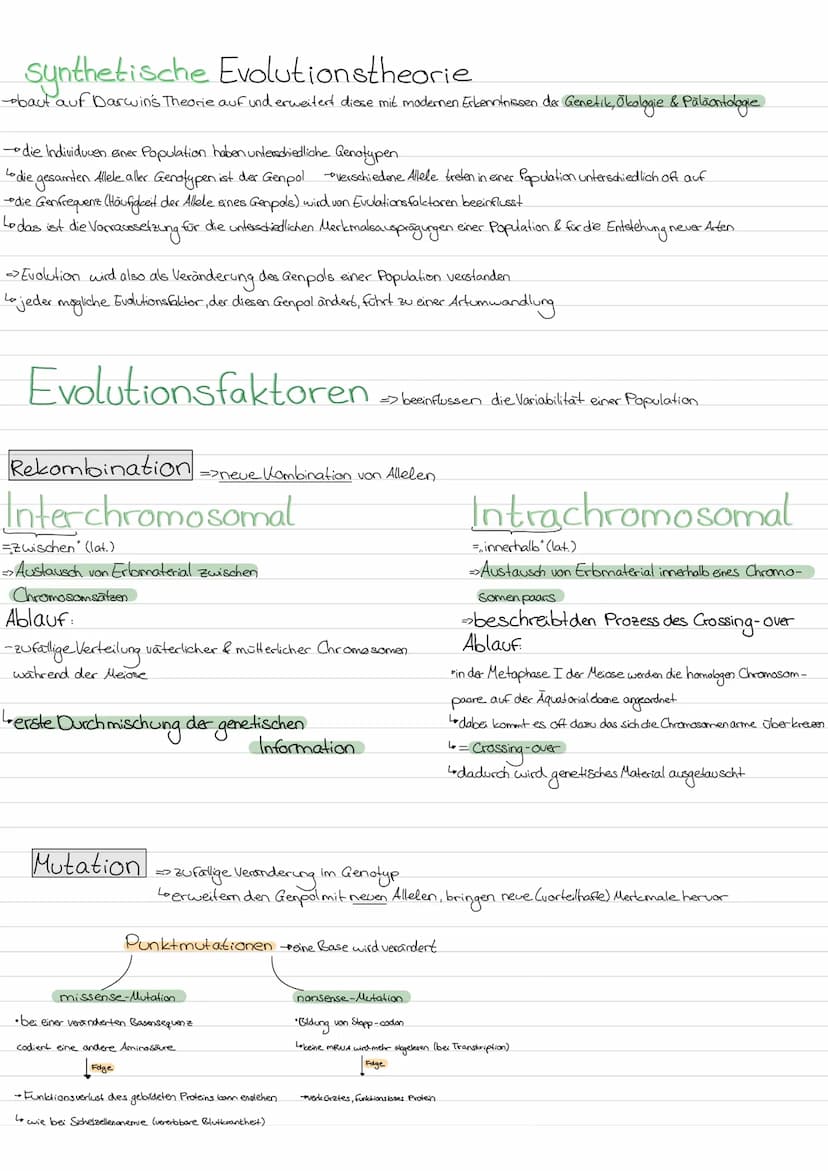 synthetische Evolutionstheorie
→baut auf Darwin's Theorie auf und erweitert diese mit modernen Erkenntnissen der Genetik, Ökologie & Paläontologie
→die Individuen einer Population haben unterschiedliche Genotypen
↳die gesamten Allele aller Genotypen ist der Genpol →verschiedene Allele treten in einer Population unterschiedlich oft auf
→die Genfrequenz (Häufigkeit der Allele eines Genpols) wird von Evulationsfaktoren beeinflusst
↳das ist die Vorraussetzung für die unterschiedlichen Merkmalsausprägungen einer Population & für die Entstehung neuer Arten
=>Evolution wird also als Veränderung des Genpols einer Population verstanden
↳jeder mögliche Evolutionsfaktor, der diesen Genpol ändert, führt zu einer Artumwandlung
Evolutionsfaktoren => beeinflussen die Variabilität einer Population
Rekombination =>neue Kombination von Allelen
Interchromosomal
="zwischen" (lat.)
=>Austausch von Erbmaterial zwischen
Chromosomsätzen
Ablauf:
-zufällige Verteilung väterlicher & mütterlicher Chromosomen
während der Meiose
↳erste Durchmischung der genetischen
Information
Intrachromosomal
="innerhalb" (lat.)
=>Austausch von Erbmaterial innerhalb eines Chromo-
somenpaars
=>beschreibt den Prozess des Crossing-over
Ablauf:
•in der Metaphase I der Meiose werden die homologen Chromosom-
paare auf der Äquatorialebene angeordnet
↳dabei kommt es oft dazu das sich die Chromosomenarme überkreuzen
↳= Crossing-over
↳dadurch wird genetisches Material ausgetauscht
Mutation => zufällige Veränderung im Genotyp
↳erweitern den Genpol mit neuen Allelen, bringen neue (vorteilhafte) Merkmale hervor
Punktmutationen →eine Base wird verändert
missense-Mutation
•bei einer veränderten Basensequenz
codiert eine andere Aminosäure
Folge
→Funktionsverlust dies gebildeten Proteins kann enstehen
↳ wie bei Sichelzellenanemie (vererbbare Blutkrankheit)
nonsense-Mutation
•Bildung von Stopp-codon
↳keine mRNA wird mehr abgelesen (bei Transkription)
Folge
→verkürztes, funktionsloses Protein